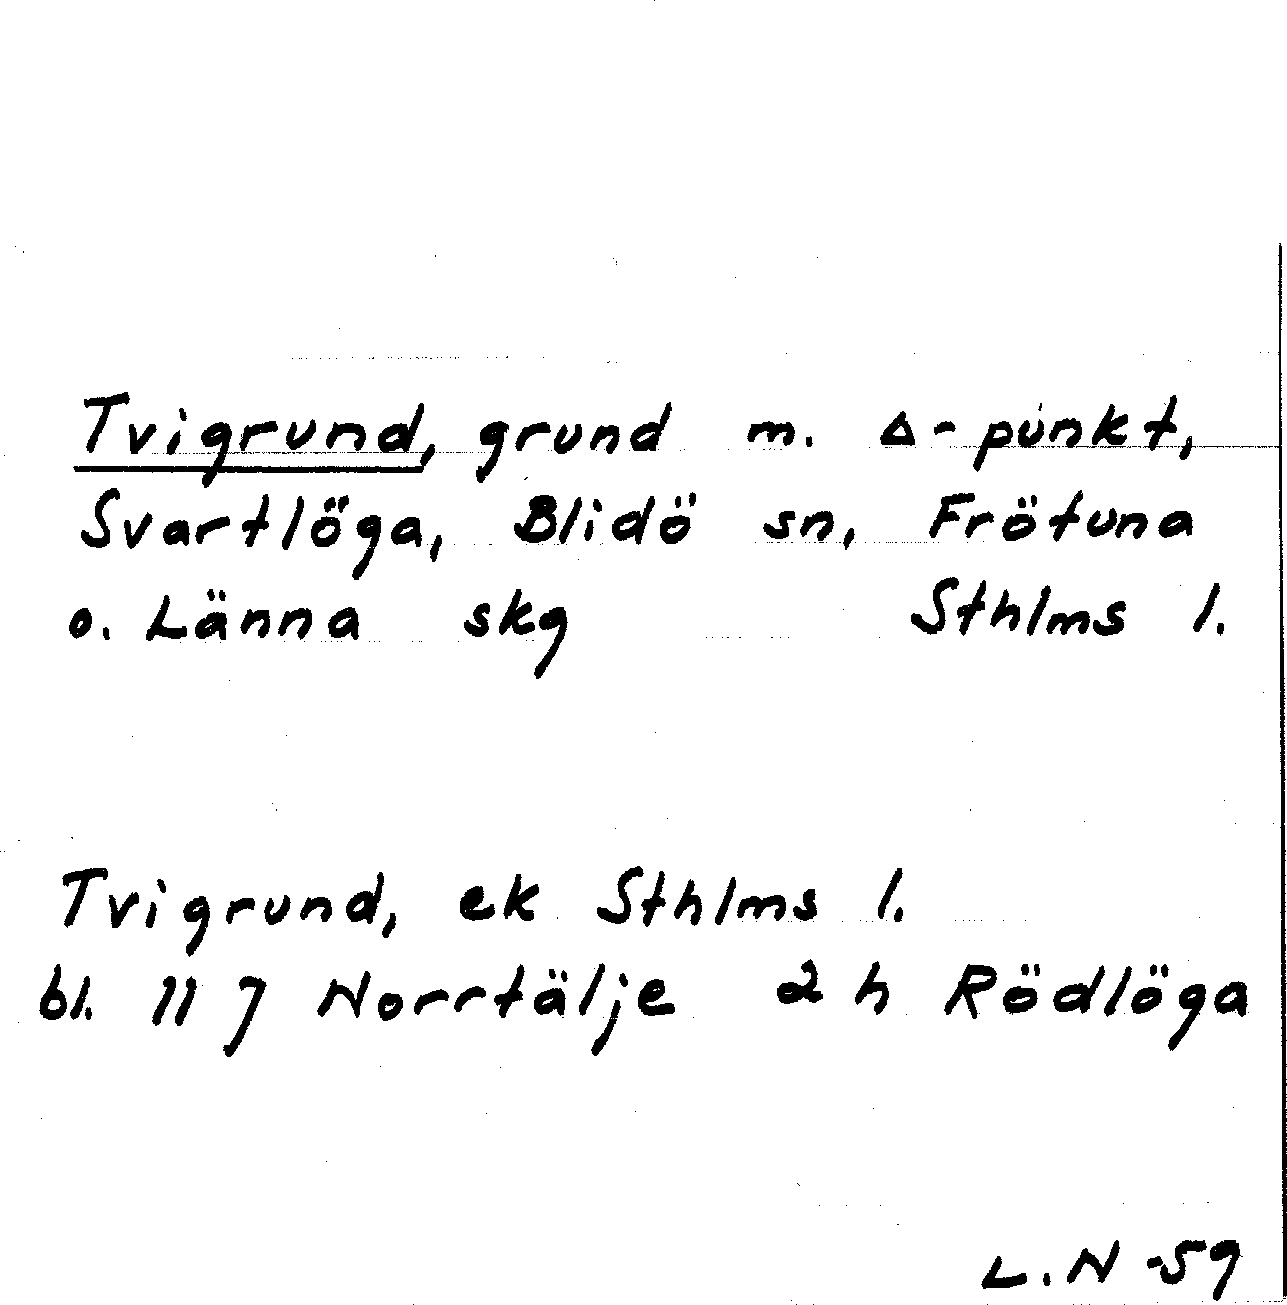 Tvigrund, grund m. Δ-punkt,
Svartlöga, Blidö sn, Frötuna
o. Länna skg Sthlms l.
Tvigrund, ek Sthlms l.
bl. 11 J Norrtälje 2 h Rödlöga
L.N -59